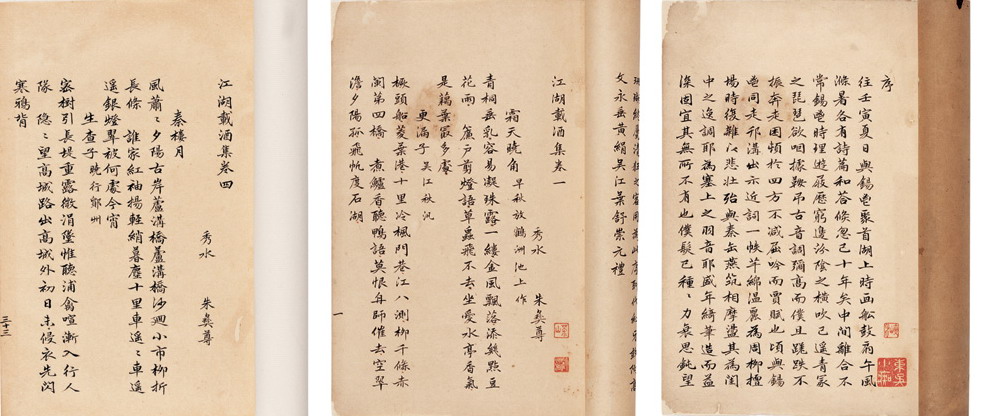 序
往壬寅夏日與錫鬯聚首湖上時画船鼓扇午風
滌暑各有詩篇和答倏忽已十年矣中間離合不
常錫鬯時理遊屐歷窮邊汾陰之横吹已遥青冢
之琵琶欲咽據鞍弔古音調彌高而僕且蹉跌不
振奔走困頓於四方不減巫吟而賈賦也頃與錫
鬯同走邗溝出示近詞一帙芊綿温麗為周柳擅
場時復雜以悲壮殆與秦缶燕筑相摩盪其為閨
中之逸調耶為塞上之羽音耶盛年綺筆造而益
深固宜其無所不有也僕髮已種〻力衰思鈍望
東吳
文永岳黄絹吴江葉舒崇元禮
江湖載酒集卷一
秀水 朱彝尊
霜天曉角 早秋放鶴洲池上作
青桐垂乳容易凝珠露一縷金風飄落添幾點豆
花雨 簾户剪燈語草蟲飛不去坐愛水亭香氣
是藕葉最多處
更漏子 吴江秋汎
橛頭船菱葉港十里冷楓門巷江八測柳千條赤
闌第四橋 煮鱸香聽鴨語莫恨舟師催去空翠
澹夕陽孤飛帆度石湖
一
江湖載酒集卷四
秀水 朱彝尊
秦樓月
風蕭〻夕陽古岸蘆溝橋蘆溝橋沙迴小市柳折
長條 誰家紅袖揚輕綃暮塵十里車遥〻車遥
遥銀燈翠被何處今宵
生查子 曉行鄚州
密樹引長堤重露微涓墜惟聽浦禽喧漸入行人
隊 隐〻望高城路出高城外初日未侵衣先閃
寒鴉背
三十三